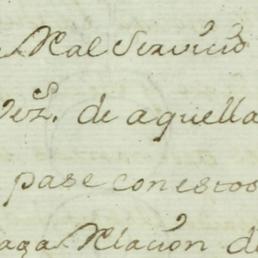 Real Servicio
Vez.s de aquella
pase con estos
haga Relacion de